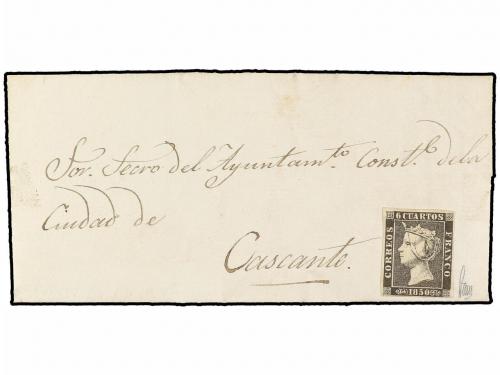 Sor. Secro del Ayuntamto. Constl. de la
Ciudad de
Cascante.
6 CUARTOS
CORREOS
FRANCO
1850